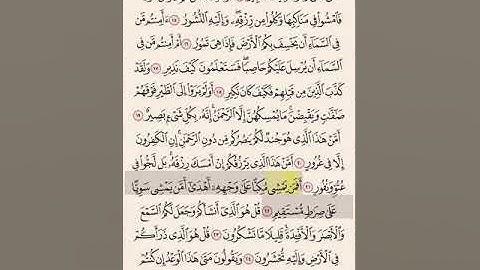 فَٱمْشُوا۟ فِى مَنَاكِبِهَا وَكُلُوا۟ مِن رِّزْقِهِۦ ۖ وَإِلَيْهِ ٱلنُّشُورُ ١٥ ءَأَمِنتُم مَّن
فِى ٱلسَّمَآءِ أَن يَخْسِفَ بِكُمُ ٱلْأَرْضَ فَإِذَا هِىَ تَمُورُ ١٦ أَمْ أَمِنتُم مَّن فِى
ٱلسَّمَآءِ أَن يُرْسِلَ عَلَيْكُمْ حَاصِبًا ۖ فَسَتَعْلَمُونَ كَيْفَ نَذِيرِ ١٧ وَلَقَدْ
كَذَّبَ ٱلَّذِينَ مِن قَبْلِهِمْ فَكَيْفَ كَانَ نَكِيرِ ١٨ أَوَلَمْ يَرَوْا۟ إِلَى ٱلطَّيْرِ فَوْقَهُمْ
صَٰٓفَّٰتٍ وَيَقْبِضْنَ ۚ مَا يُمْسِكُهُنَّ إِلَّا ٱلرَّحْمَٰنُ ۚ إِنَّهُۥ بِكُلِّ شَىْءٍۭ بَصِيرٌ ١٩
أَمَّنْ هَٰذَا ٱلَّذِى هُوَ جُندٌ لَّكُمْ يَنصُرُكُم مِّن دُونِ ٱلرَّحْمَٰنِ ۚ إِنِ ٱلْكَٰفِرُونَ
إِلَّا فِى غُرُورٍ ٢٠ أَمَّنْ هَٰذَا ٱلَّذِى يَرْزُقُكُمْ إِنْ أَمْسَكَ رِزْقَهُۥ ۚ بَل لَّجُّوا۟ فِى
عُتُوٍّ وَنُفُورٍ ٢١ أَفَمَن يَمْشِى مُكِبًّا عَلَىٰ وَجْهِهِۦٓ أَهْدَىٰٓ أَمَّن يَمْشِى سَوِيًّا
عَلَىٰ صِرَٰطٍ مُّسْتَقِيمٍ ٢٢ قُلْ هُوَ ٱلَّذِىٓ أَنشَأَكُمْ وَجَعَلَ لَكُمُ ٱلسَّمْعَ
وَٱلْأَبْصَٰرَ وَٱلْأَفْـِٔدَةَ ۖ قَلِيلًا مَّا تَشْكُرُونَ ٢٣ قُلْ هُوَ ٱلَّذِى ذَرَأَكُمْ
فِى ٱلْأَرْضِ وَإِلَيْهِ تُحْشَرُونَ ٢٤ وَيَقُولُونَ مَتَىٰ هَٰذَا ٱلْوَعْدُ إِن كُنتُمْ